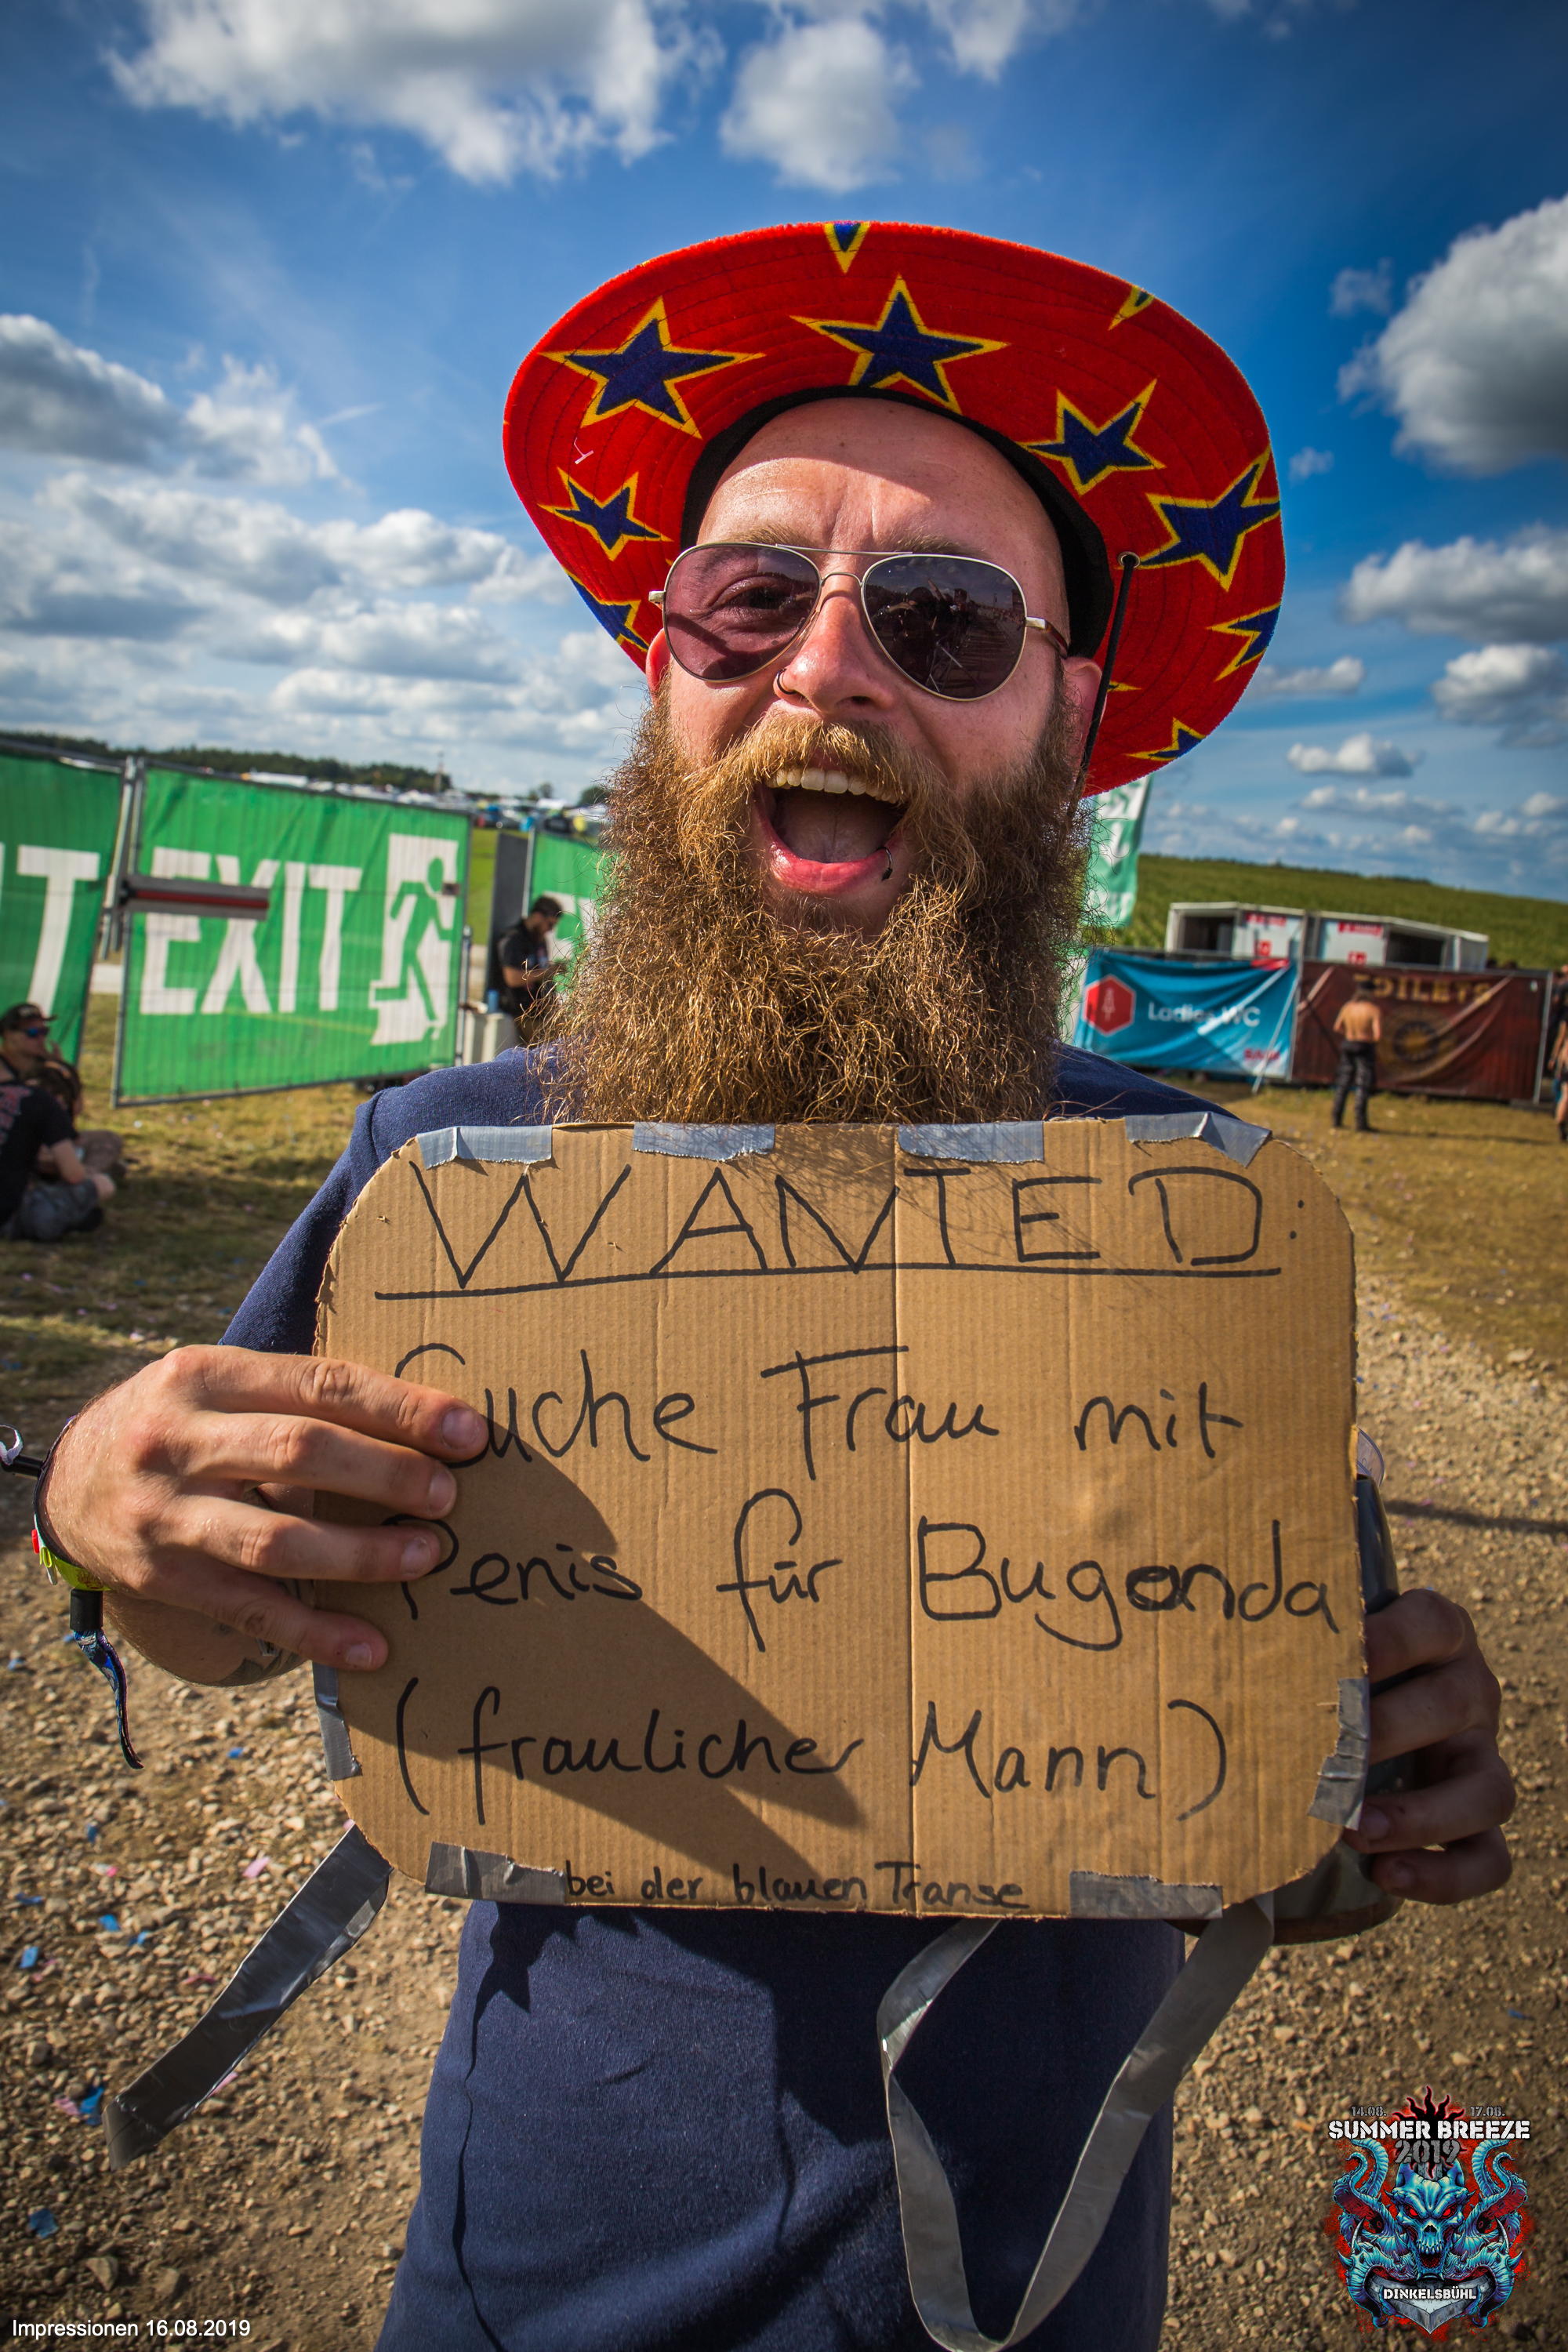 EXIT
Ladies WC
WANTED:
Suche Frau mit
Penis für Buganda
(fraulicher Mann)
bei der blauen Transe
14.08. 17.08.
SUMMER BREEZE
2019
DINKELSBÜHL
Impressionen 16.08.2019